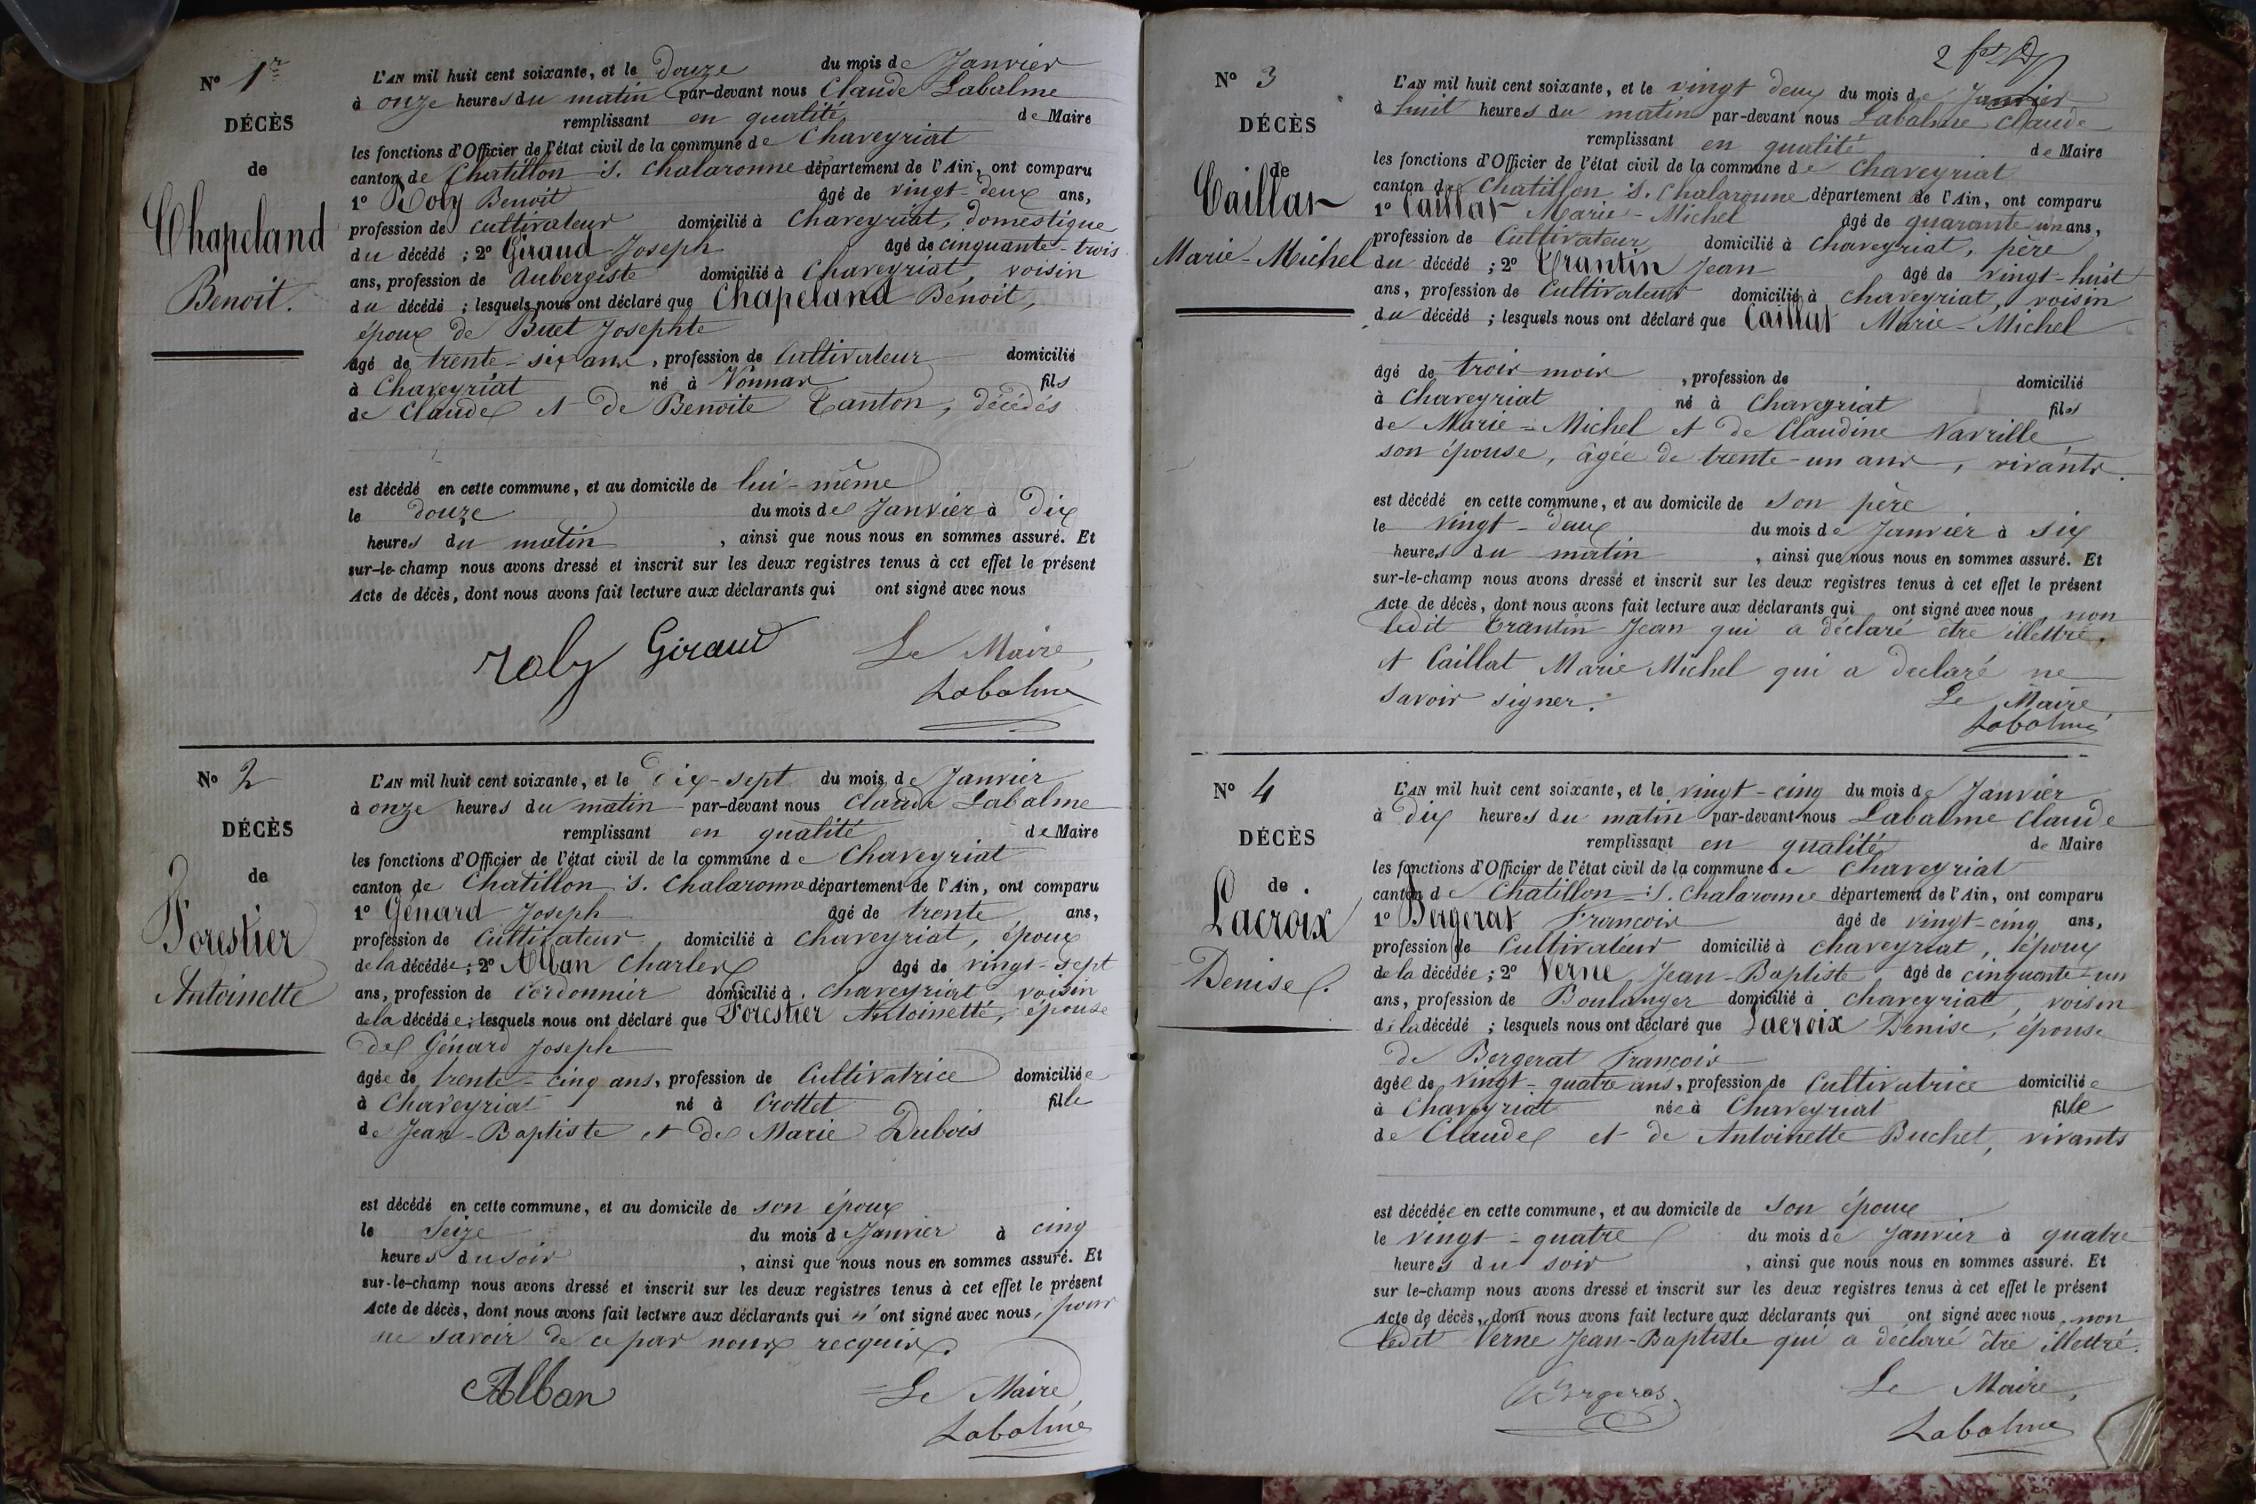 N° 1er
DÉCÈS
de
Chapeland
Benoit.
L'AN mil huit cent soixante, et le douze du mois de Janvier
à onze heures du matin par-devant nous Claude Labalme
remplissant en qualité de Maire
les fonctions d'Officier de l'état civil de la commune de Chaveyriat
canton de Chatillon s. Chalaronne département de l'Ain, ont comparu
1° Roly Benoit âgé de vingt-deux ans,
profession de cultivateur domicilié à Chaveyriat, domestique
du décédé ; 2° Giraud Joseph âgé de cinquante-trois
ans, profession de Aubergiste domicilié à Chaveyriat, voisin
du décédé ; lesquels nous ont déclaré que Chapeland Benoit,
époux de Buet Josephte
âgé de trente-six ans, profession de Cultivateur domicilié
à Chaveyriat né à Vonnas fils
de Claude et de Benoite Tanton, décédés
est décédé en cette commune, et au domicile de lui-même
le douze du mois de Janvier à dix
heures du matin, ainsi que nous nous en sommes assuré. Et
sur-le-champ nous avons dressé et inscrit sur les deux registres tenus à cet effet le présent
Acte de décès, dont nous avons fait lecture aux déclarants qui ont signé avec nous
roly Giraud Le Maire,
Labalme
N° 2
DÉCÈS
de
Forestier
Antoinette
L'AN mil huit cent soixante, et le dix-sept du mois de Janvier
à onze heures du matin par-devant nous Claude Labalme
remplissant en qualité de Maire
les fonctions d'Officier de l'état civil de la commune de Chaveyriat
canton de Chatillon s. Chalaronne département de l'Ain, ont comparu
1° Génard Joseph âgé de trente ans,
profession de Cultivateur domicilié à Chaveyriat, époux
de la décédée ; 2° Alban Charles âgé de vingt-sept
ans, profession de Cordonnier domicilié à Chaveyriat voisin
de la décédée ; lesquels nous ont déclaré que Forestier Antoinette, épouse
de Génard Joseph
âgée de trente-cinq ans, profession de Cultivatrice domiciliée
à Chaveyriat né à Crottet fille
de Jean-Baptiste et de Marie Dubois
est décédé en cette commune, et au domicile de son époux
le Seize du mois d Janvier à cinq
heures du soir, ainsi que nous nous en sommes assuré. Et
sur-le-champ nous avons dressé et inscrit sur les deux registres tenus à cet effet le présent
Acte de décès, dont nous avons fait lecture aux déclarants qui n'ont signé avec nous, pour
ne savoir de ce par nous recquis.
Alban Le Maire
Labalme
N° 3
DÉCÈS
de
Caillat
Marie-Michel
L'AN mil huit cent soixante, et le vingt deux du mois de Janvier
à huit heures du matin par-devant nous Labalme Claude
remplissant en qualité de Maire
les fonctions d'Officier de l'état civil de la commune de Chaveyriat
canton de Chatillon s. Chalaronne département de l'Ain, ont comparu
1° Caillat Marie-Michel âgé de quarante un ans,
profession de Cultivateur domicilié à Chaveyriat, père
du décédé ; 2° Trantin Jean âgé de vingt-huit
ans, profession de Cultivateur domicilié à Chaveyriat, voisin
du décédé ; lesquels nous ont déclaré que Caillat Marie-Michel
âgé de trois mois, profession de domicilié
à Chaveyriat né à Chaveyriat fils
de Marie-Michel et de Claudine Navrille,
son épouse, âgée de trente-un ans, vivants.
est décédé en cette commune, et au domicile de son père
le vingt-deux du mois de Janvier à six
heures du matin, ainsi que nous nous en sommes assuré. Et
sur-le-champ nous avons dressé et inscrit sur les deux registres tenus à cet effet le présent
Acte de décès, dont nous avons fait lecture aux déclarants qui ont signé avec nous, non
ledit Trantin Jean qui a déclaré être illettré.
et Caillat Marie Michel qui a declaré ne
savoir signer. Le Maire
Labalme
N° 4
DÉCÈS
de
Lacroix
Denise.
L'AN mil huit cent soixante, et le vingt-cinq du mois de Janvier
à dix heures du matin par-devant nous Labalme Claude
remplissant en qualité de Maire
les fonctions d'Officier de l'état civil de la commune de Chaveyriat
canton de Chatillon s. Chalaronne département de l'Ain, ont comparu
1° Bergerat François âgé de vingt-cinq ans,
profession de Cultivateur domicilié à Chaveyriat, époux
de la décédée ; 2° Verne Jean-Baptiste âgé de cinquante-un
ans, profession de Boulanger domicilié à Chaveyriat, voisin
de la décédé ; lesquels nous ont déclaré que Lacroix Denise, épouse
de Bergerat François
âgée de vingt-quatre ans, profession de Cultivatrice domiciliée
à Chaveyriat née à Chaveyriat fille
de Claude et de Antoinette Buchet, vivants
est décédée en cette commune, et au domicile de son époux
le vingt-quatre du mois de Janvier à quatre
heures du soir, ainsi que nous nous en sommes assuré. Et
sur le-champ nous avons dressé et inscrit sur les deux registres tenus à cet effet le présent
Acte de décès, dont nous avons fait lecture aux déclarants qui ont signé avec nous, non
ledit Verne Jean-Baptiste qui a déclaré être illettré.
Bergeras Le Maire,
Labalme